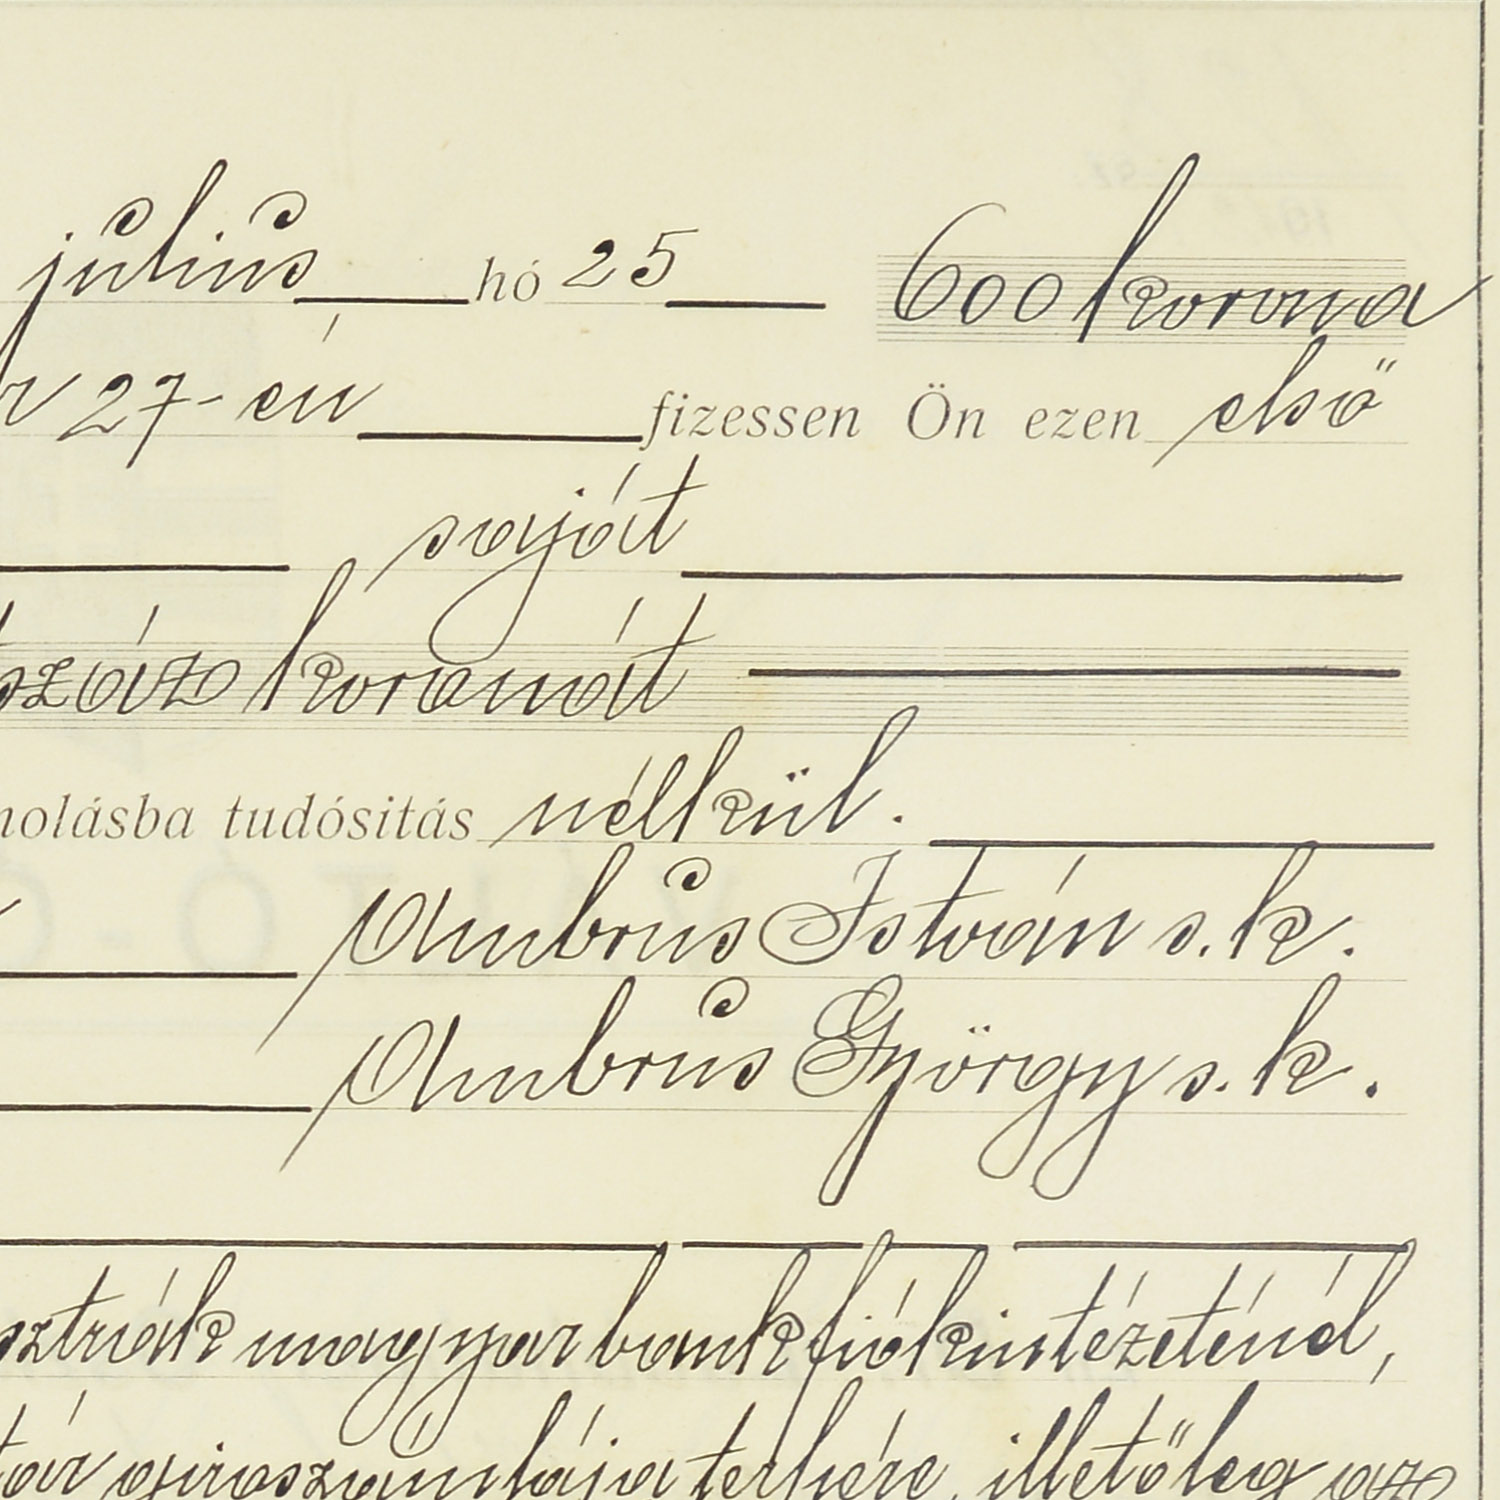 július hó 25 600 korona
27-én fizessen Ön ezen első
saját
száz koronát
molásba tudósitás nélkül.
Ambrus István s. k.
Ambrus György s. k.
sztrák magyar bank fiókintézeténél,
tár giroszámlája terhére, illetőleg az